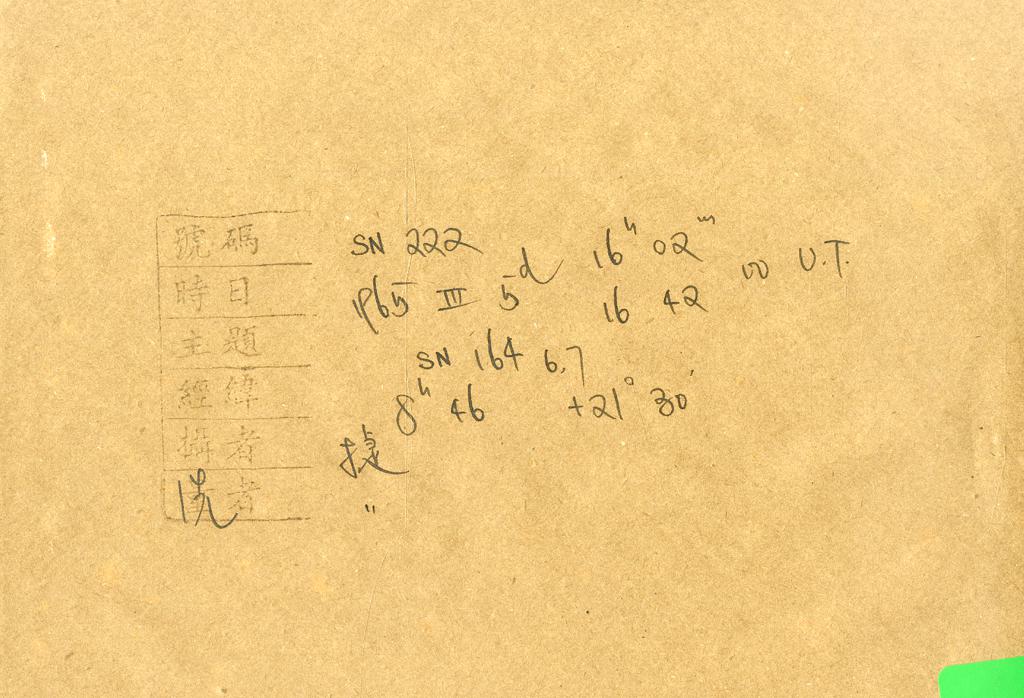 號碼 SN 222
時日 1965 III 5d 16h 02m 16 42 U.T.
主題 SN 164 6,7
經緯 8h 46 +21° 30'
攝者
洗者 "